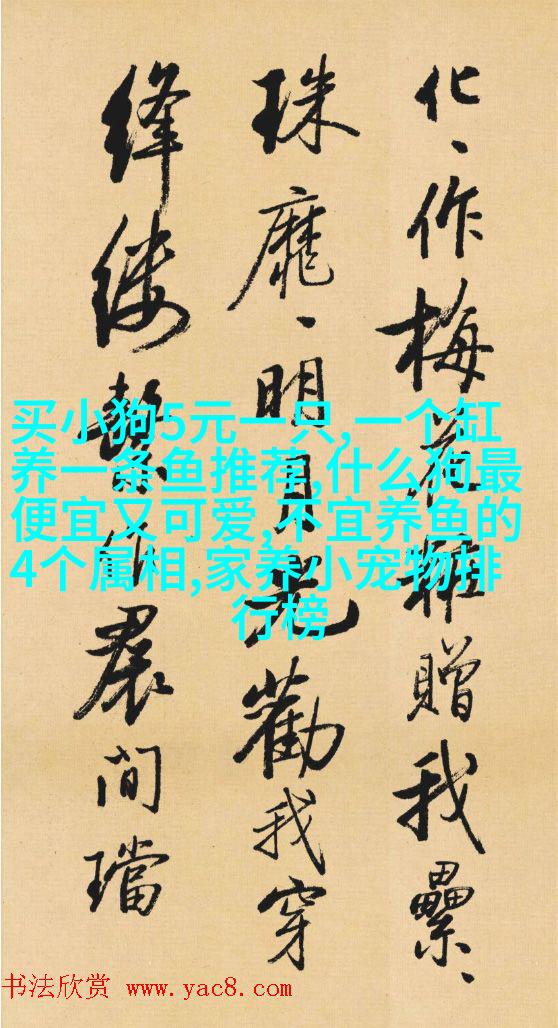 化、作梅花贈我纍、
珠靡、明月光勸我穿
絳縷繫作裙間璫
买小狗5元一只,一个缸
养一条鱼推荐,什么狗最
便宜又可爱,不宜养鱼的
4个属相,家养小宠物排
行榜
书法欣赏 www.yac8.com